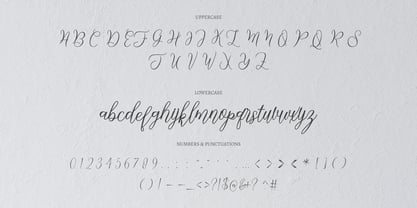 UPPERCASE
A B C D E F G H I J K L M N O P Q R S
T U V W X Y Z
LOWERCASE
abcdefghijklmnopqrstuvwxyz
NUMBERS & PUNCTUATIONS
0 1 2 3 4 5 6 7 8 9